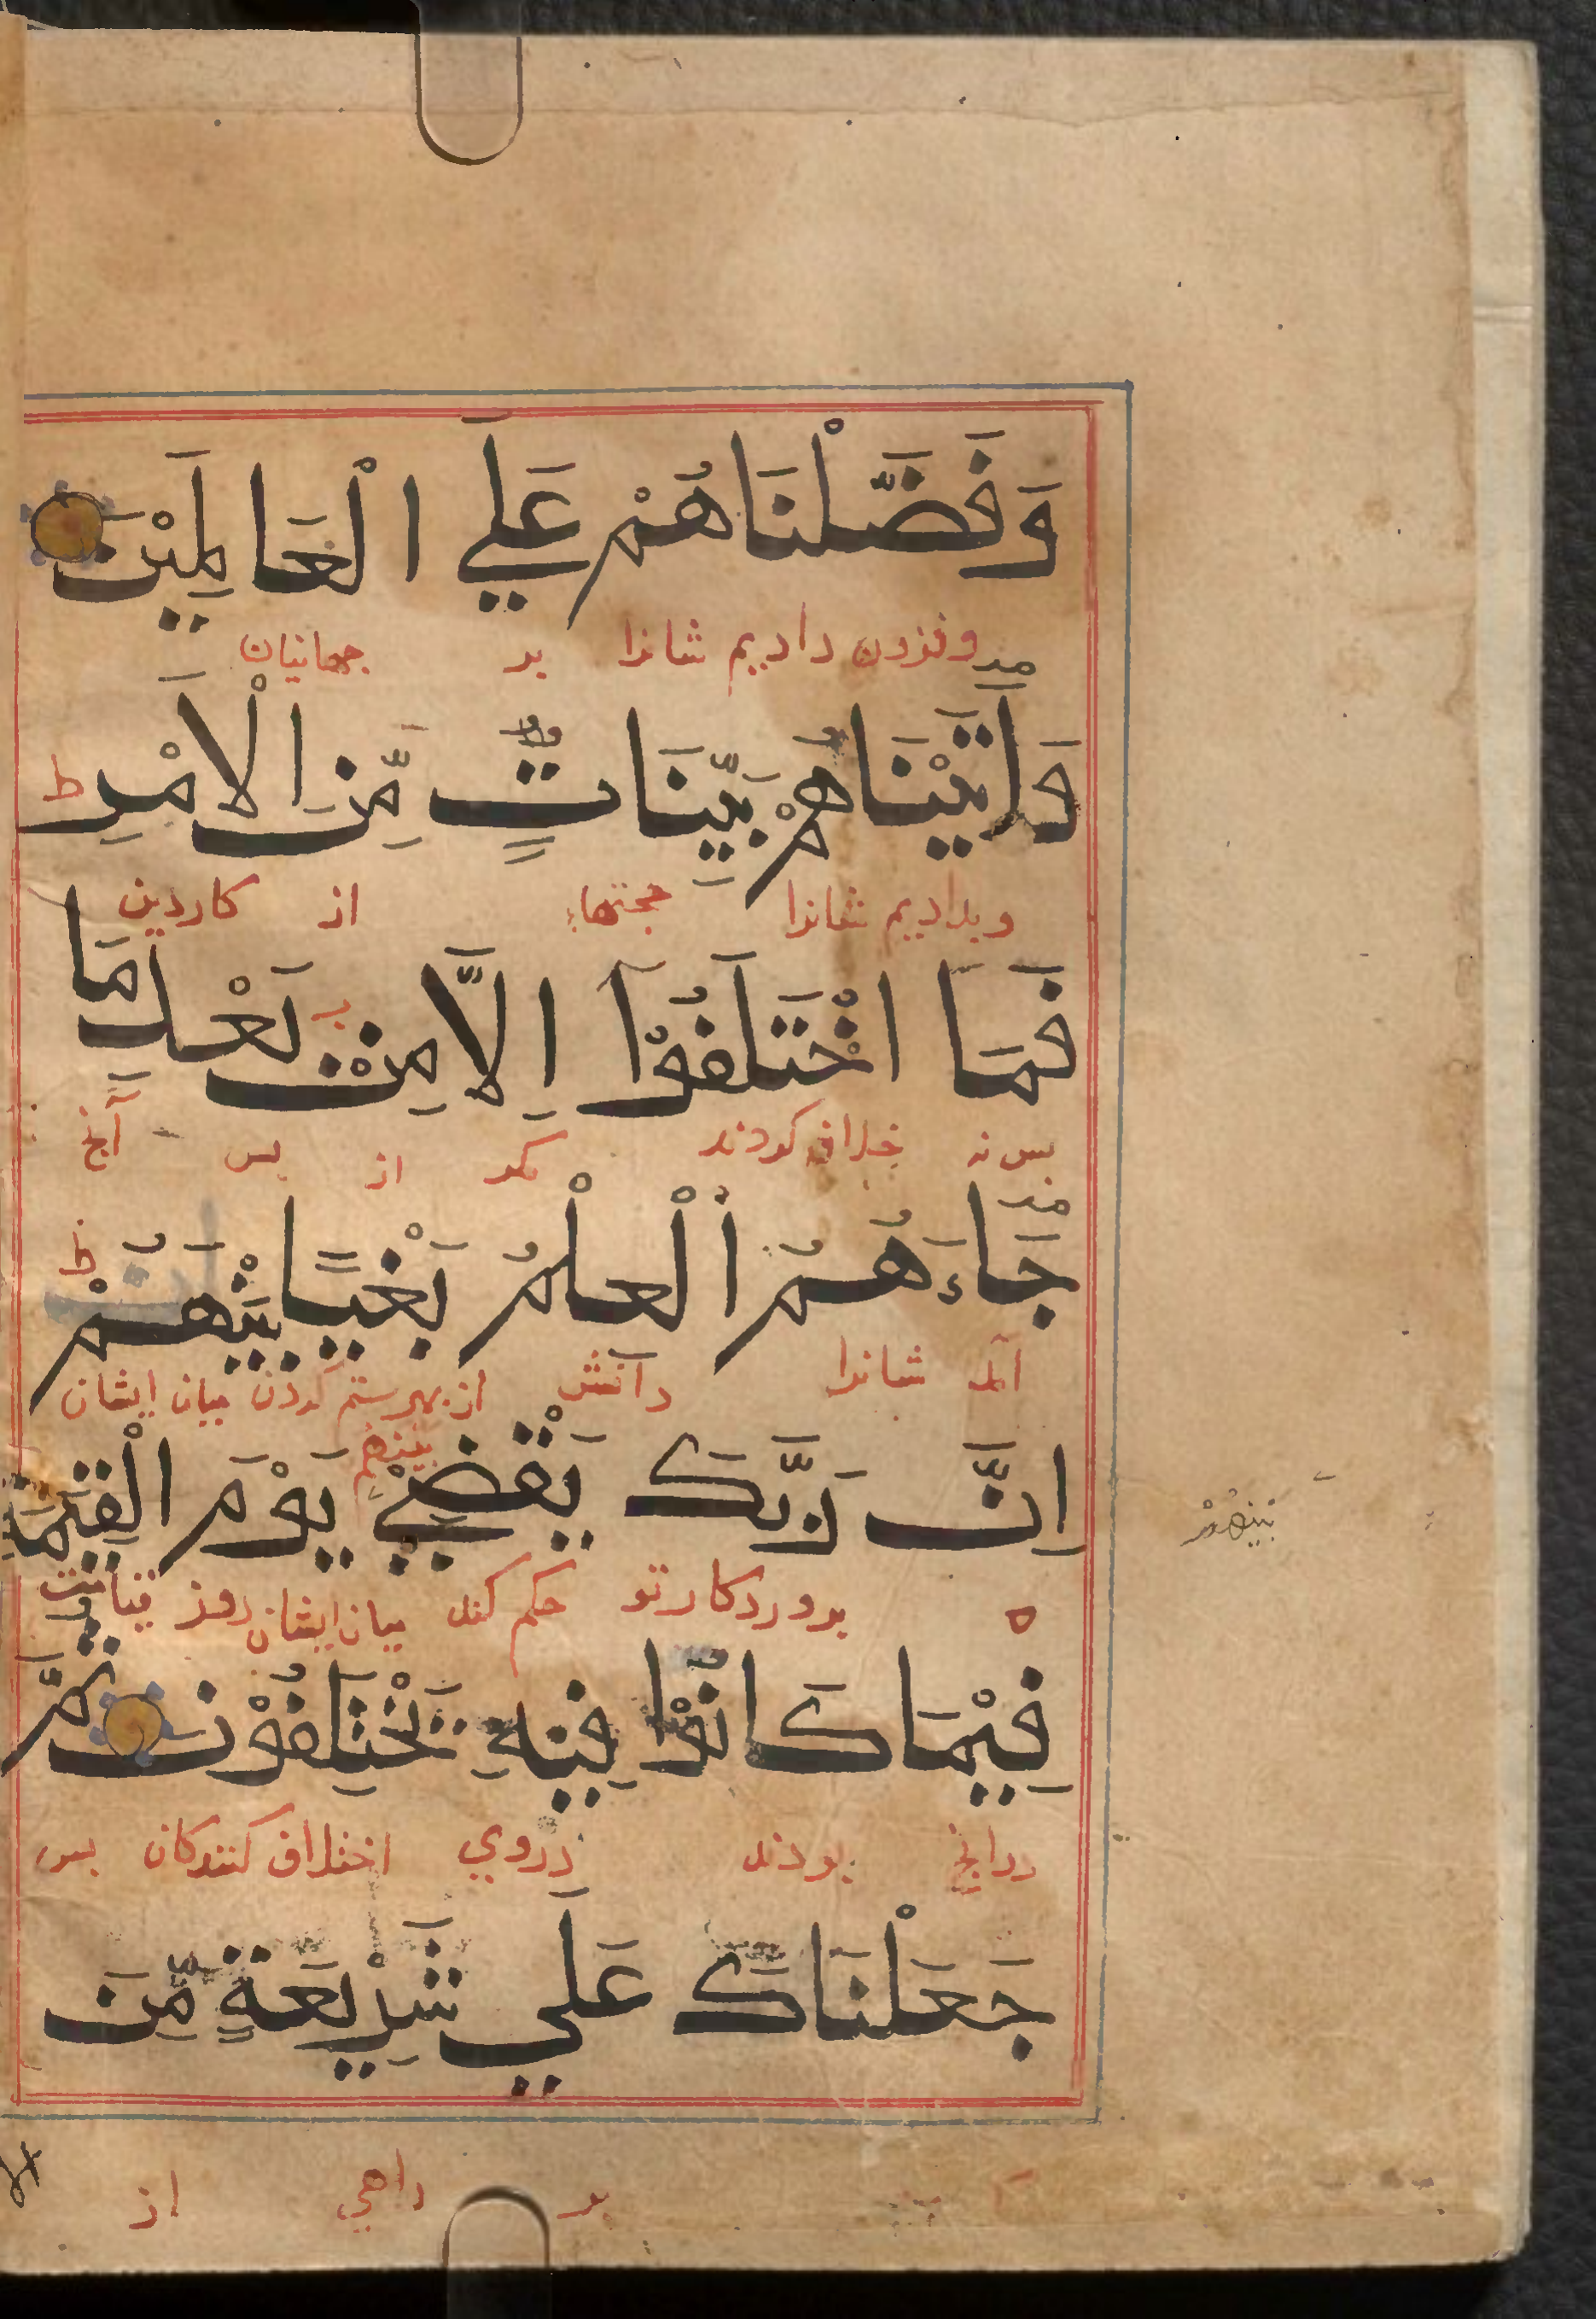 وَفَضَّلْنَاهُمْ عَلَي الْعَالَمِيْنَ
وفزون داديم شانرا بر جهانيان
وَاٰتَيْنَاهُمْ بَيِّنَاتٍ مِّنَ الْاَمْرِ ط
وبداديم شانرا حجتهاء از كاردين
فَمَا اخْتَلَفُوْا اِلَّا مِنْ بَعْدِ مَا
بس نه خلاف كردند مكر از بس آنج
جَاءَهُمُ الْعِلْمُ بَغْيًا بَيْنَهُمْ ط
آمد شانرا دانش از بهر ستم كردن ميان ايشان
اِنَّ رَبَّكَ يَقْضِيْ بَيْنَهُمْ يَوْمَ الْقِيٰمَةِ
بَيْنَهُمْ
بروردكار تو حكم كند ميان ايشان روز قيامت
فِيْمَا كَانُوْا فِيْهِ يَخْتَلِفُوْنَ ثُمَّ
درانج بودند دروي اختلاف كنندكان بس
جَعَلْنَاكَ عَلَي شَرِيْعَةٍ مِّنَ
بر راهي از